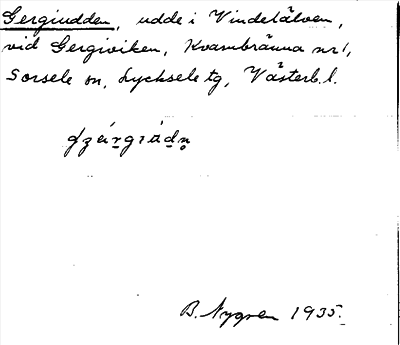 Gergiudden, udde i Vindelälven,
vid Gergiviken, Kvarnbränna nr 1,
Sorsele sn, Lycksele tg, Västerb. l.
B. Nygren 1935.